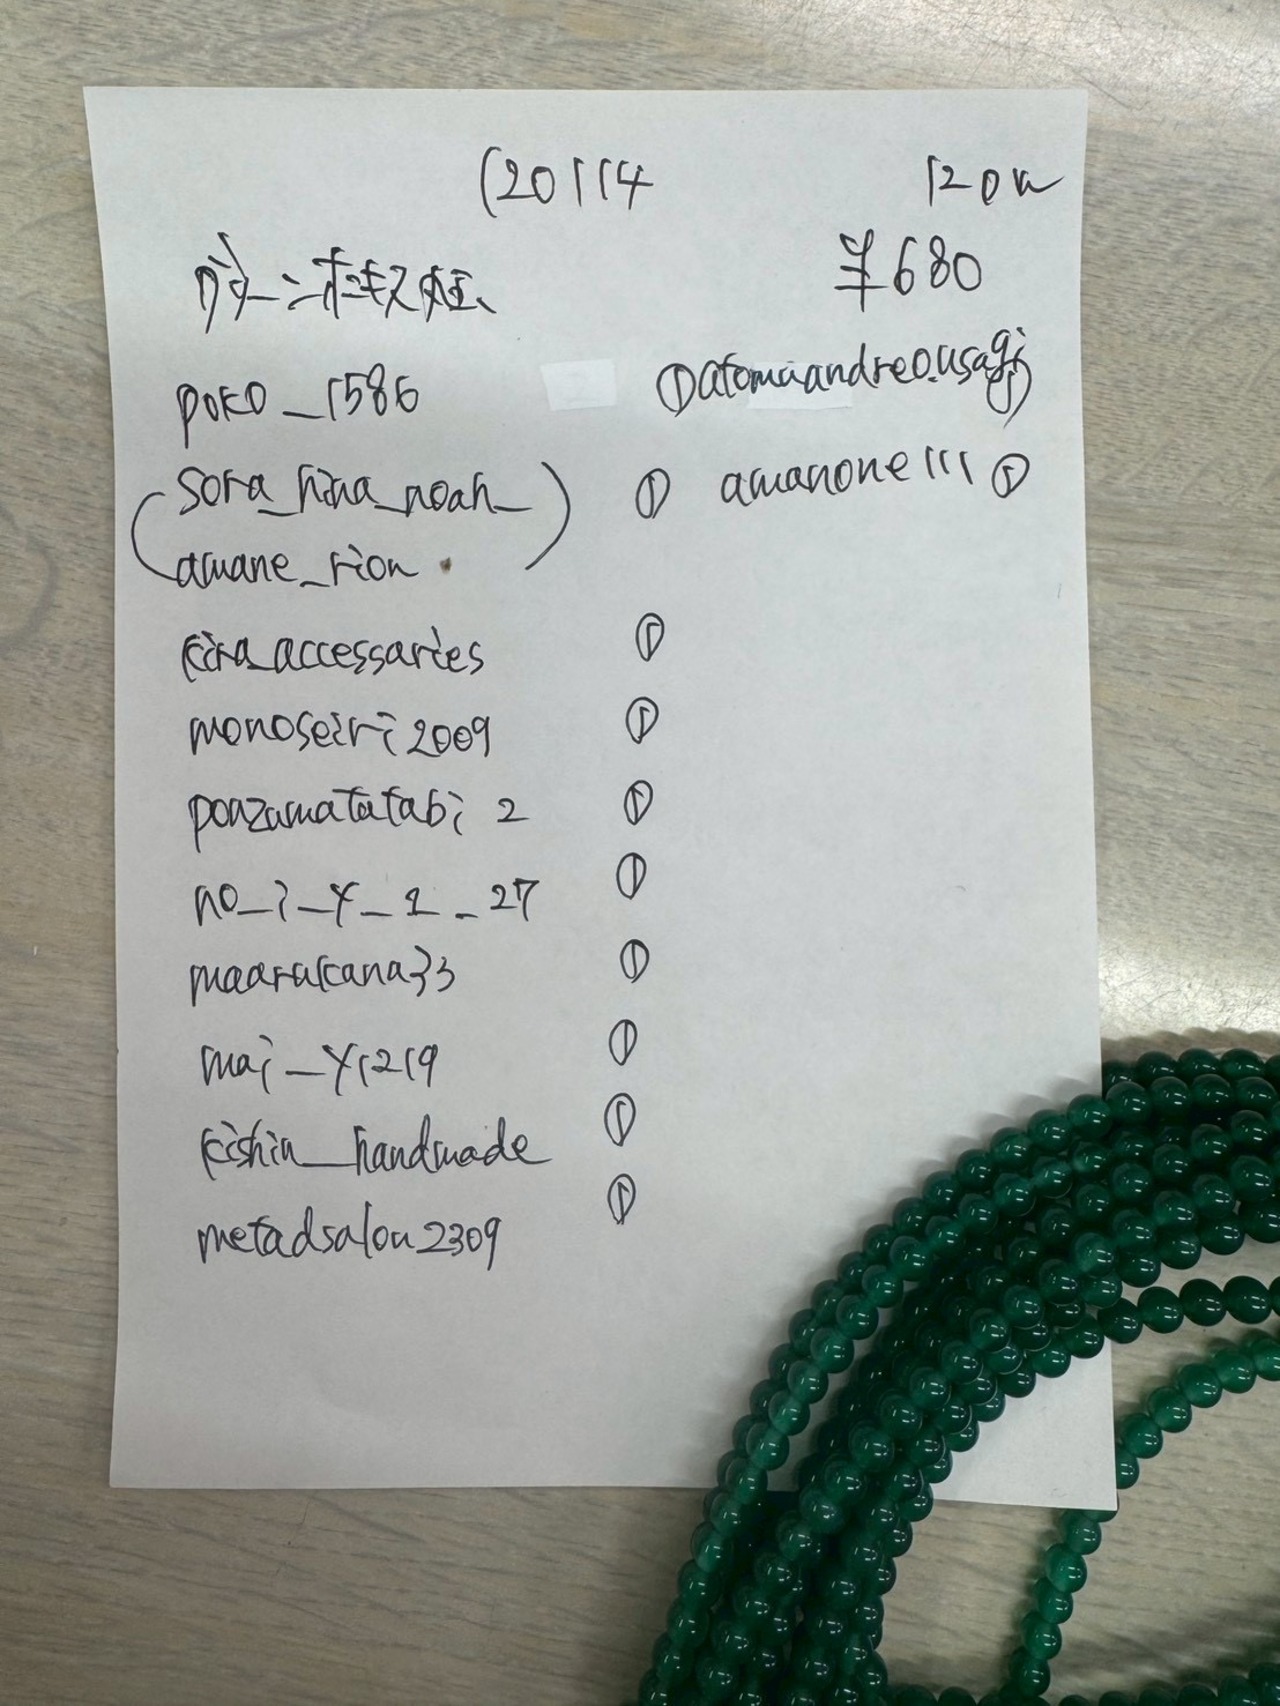 120114
¥680
poko_1586
①atomuandreo.usagi①
sora_hina_noah_
① amanone111 ①
amane_rion
kira_accessaries ①
monoseiri2009 ①
ponzumatatabi2 ①
no_i_y_1_27 ①
maarukana33 ①
mai_y1219 ①
kishin_handmade ①
metadsalon2309 ①